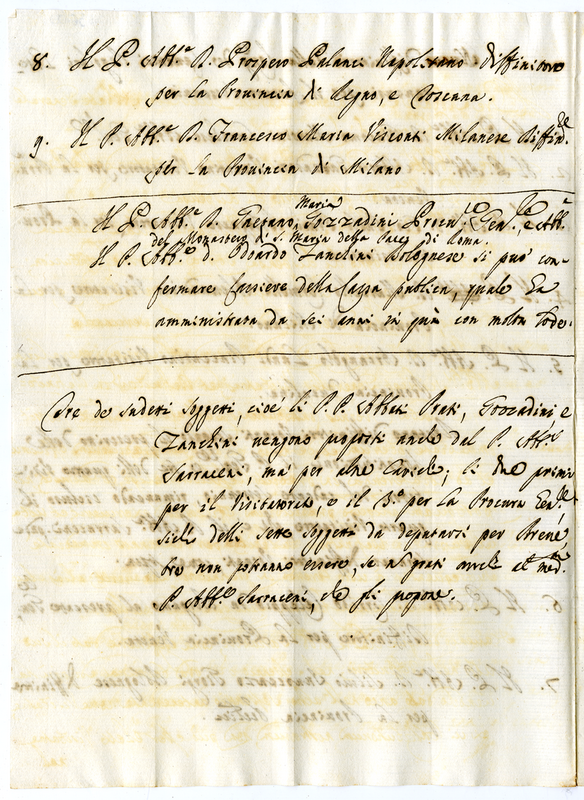 8. Il P. Abb.e D. Prospero Palanci Napolitano Diffinitore
per la Provincia di Regno, e Toscana.
9. Il P. Abb.e D. Francesco Maria Visconti Milanese Diffind.e
per la Provincia di Milano
Il P. Abb.e D. Gaetano Maria Gozzadini Procu.re Gen.le e Abb.e
del Monastero di S. Maria della Pace di Roma.
Il P. Abb.e d. Odoardo Zanchini Bolognese si può con=
fermare Cassiere della Cassa publica, quale ha
amministrata da sei anni in quà con molta lode.
Tre de sudetti soggetti, cioè li P.P. Abbati Prati, Gozzadini, e
Zanchini vengono proposti anche dal P. Abb.e
Sarraceni, mà per altre Cariche; li due primi
per il Visitatorato, e il 3.o per la Procura Gen.le
siche delli sette soggetti da deputarsi per
non potranno essere, se n grati anche al med.mo
P. Abb.e Sarraceni, che gli propone.